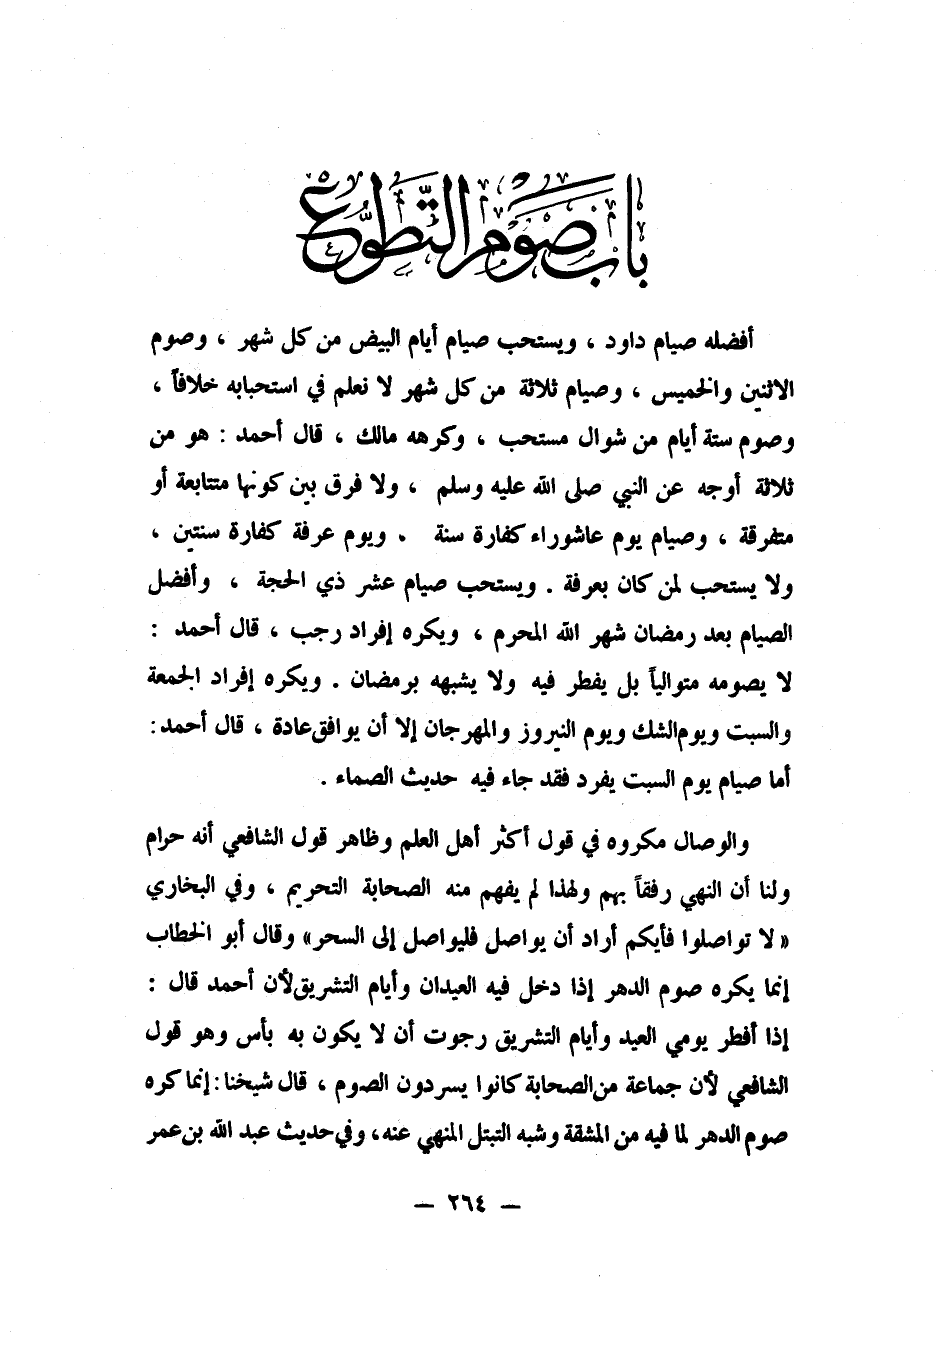 باب صوم التطوع
أفضله صيام داود ، ويستحب صيام أيام البيض من كل شهر ، وصوم
الاثنين والخميس ، وصيام ثلاثة من كل شهر لا نعلم في استحبابه خلافاً ،
وصوم ستة أيام من شوال مستحب ، وكرهه مالك ، قال أحمد : هو من
ثلاثة أوجه عن النبي صلى الله عليه وسلم ، ولا فرق بين كونها متتابعة أو
متفرقة ، وصيام يوم عاشوراء كفارة سنة . ويوم عرفة كفارة سنتين ،
ولا يستحب لمن كان بعرفة . ويستحب صيام عشر ذي الحجة ، وأفضل
الصيام بعد رمضان شهر الله المحرم ، ويكره إفراد رجب ، قال أحمد :
لا يصومه متوالياً بل يفطر فيه ولا يشبهه برمضان . ويكره إفراد الجمعة
والسبت ويوم الشك ويوم النيروز والمهرجان إلا أن يوافق عادة ، قال أحمد :
أما صيام يوم السبت يفرد فقد جاء فيه حديث الصماء .
والوصال مكروه في قول أكثر أهل العلم وظاهر قول الشافعي أنه حرام
ولنا أن النهي رفقاً بهم ولهذا لم يفهم منه الصحابة التحريم ، وفي البخاري
« لا تواصلوا فأيكم أراد أن يواصل فليواصل إلى السحر» وقال أبو الخطاب
إنما يكره صوم الدهر إذا دخل فيه العيدان وأيام التشريق لأن أحمد قال :
إذا أفطر يومي العيد وأيام التشريق رجوت أن لا يكون به بأس وهو قول
الشافعي لأن جماعة من الصحابة كانوا يسردون الصوم ، قال شيخنا : إنما كره
صوم الدهر لما فيه من المشقة وشبه التبتل المنهي عنه، وفي حديث عبد الله بن عمر
— ٢٦٤ —